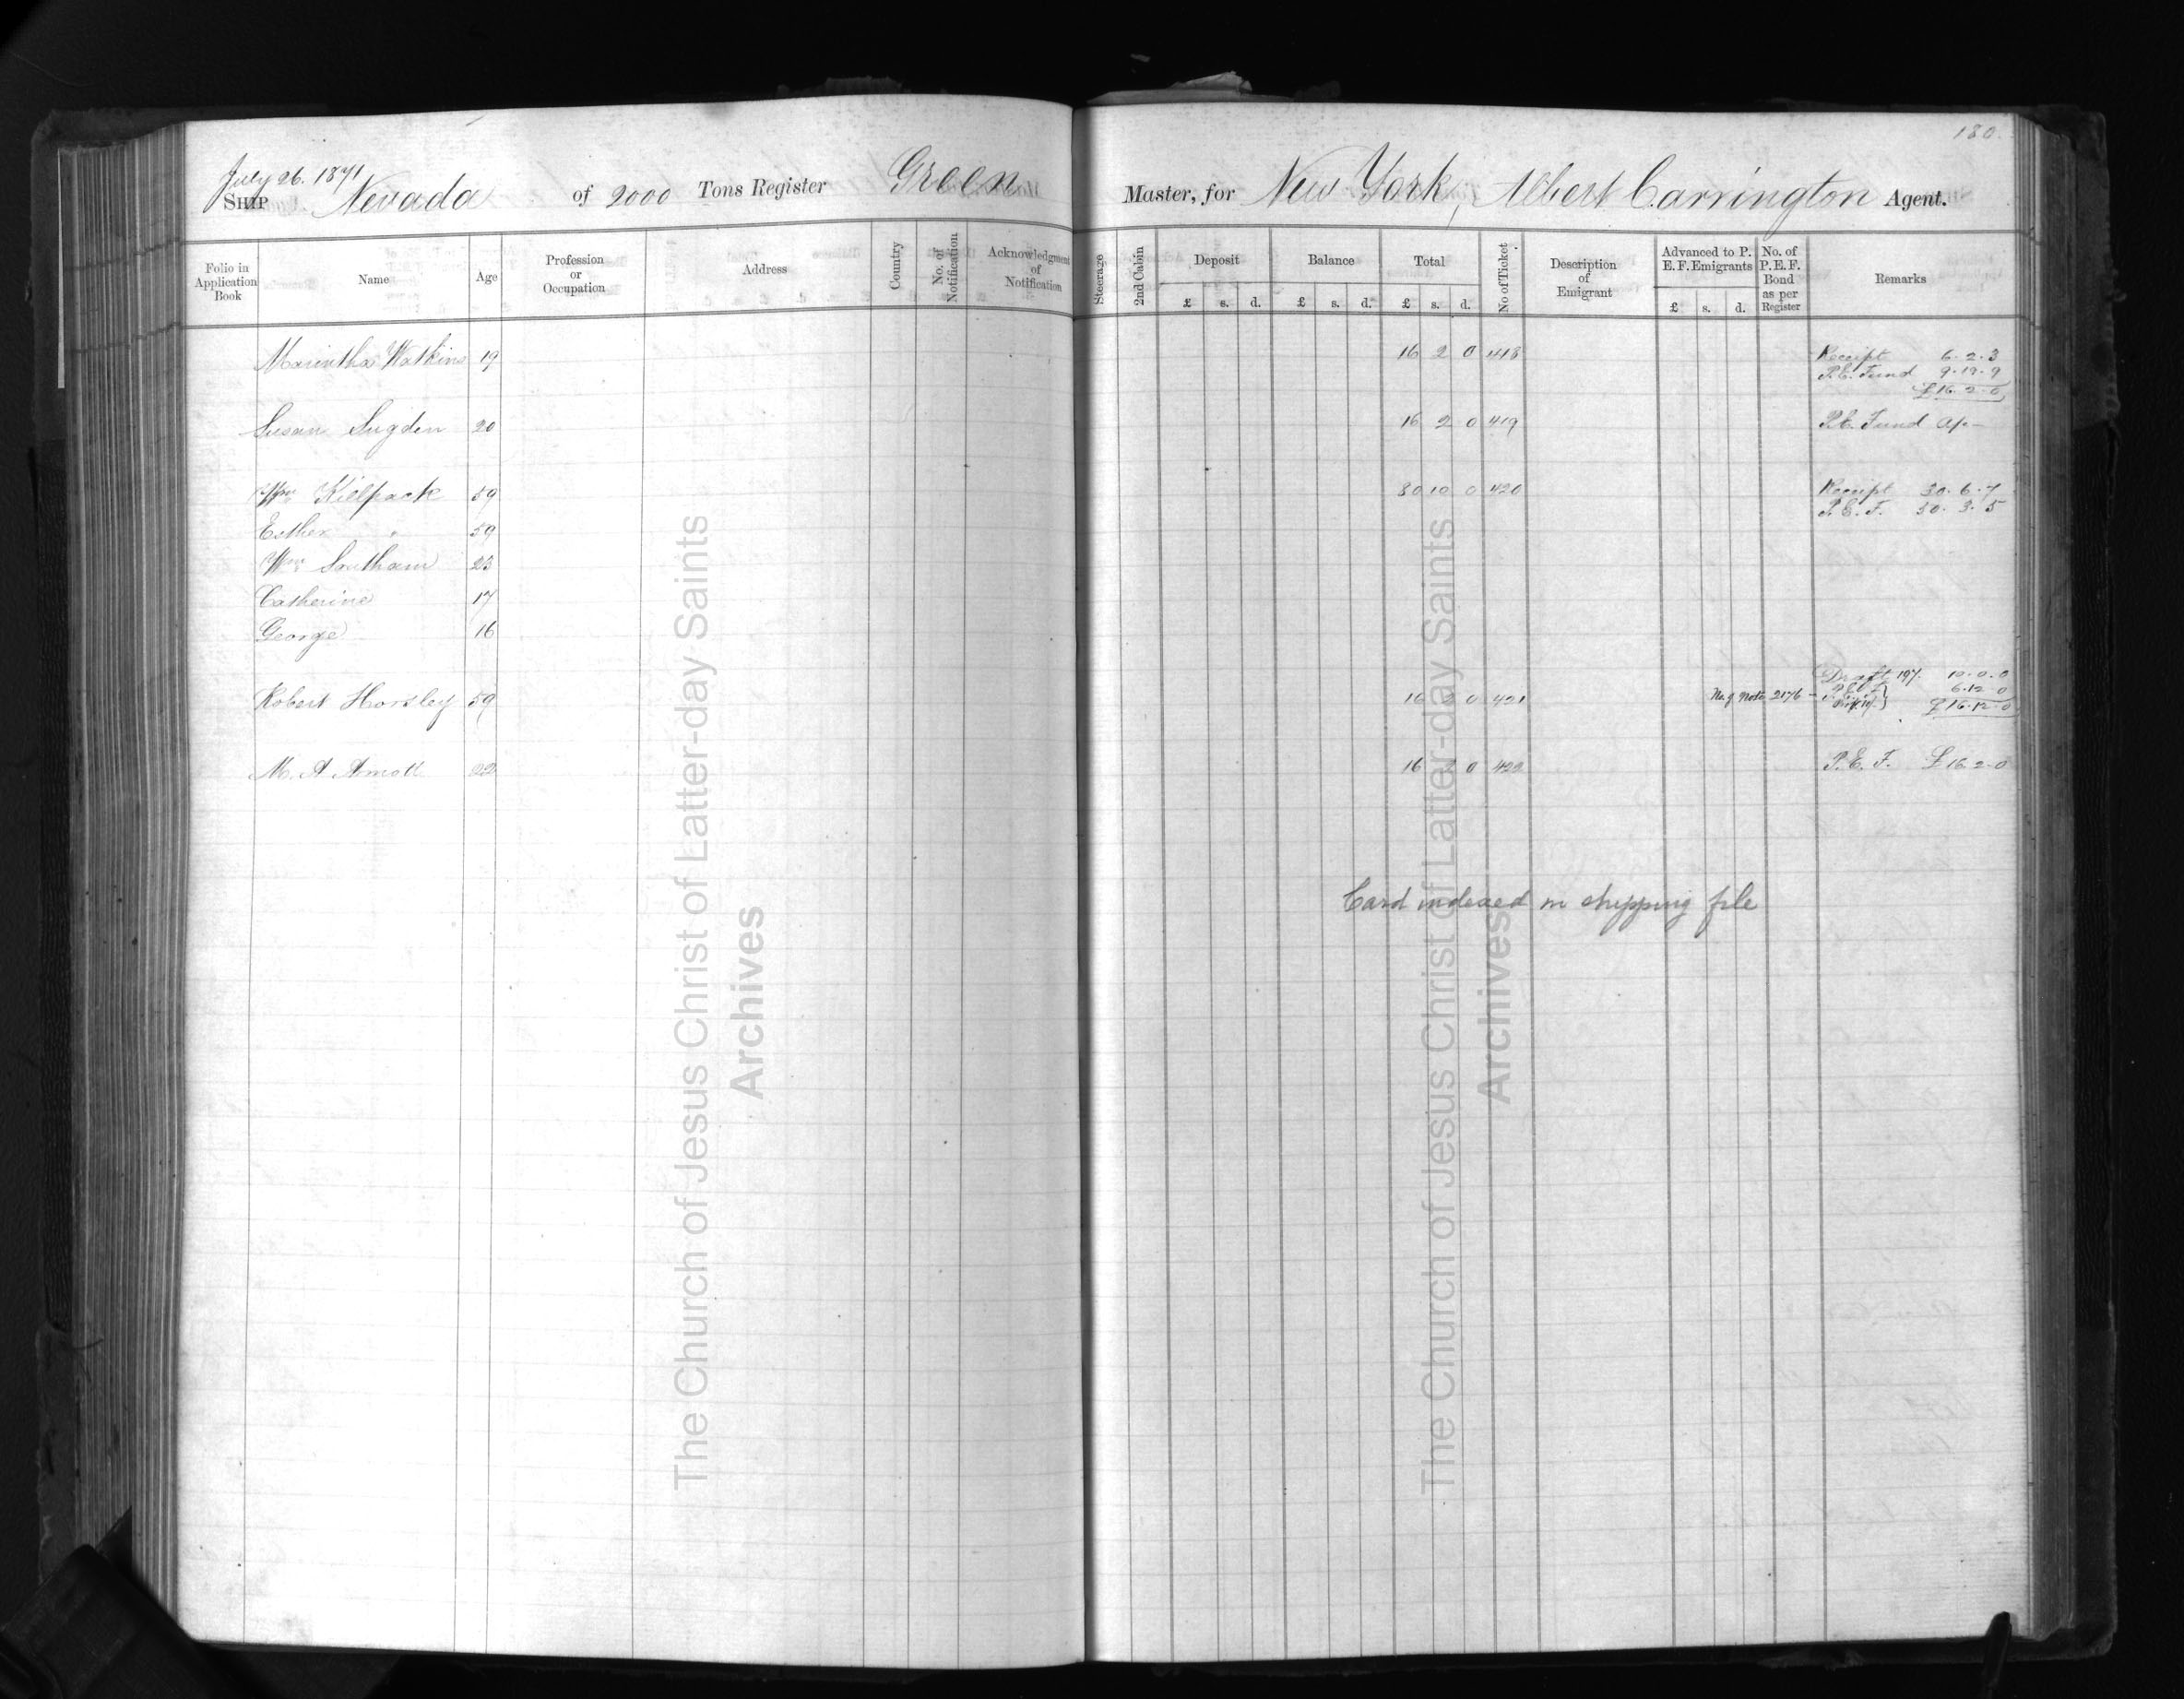 180.
July 26. 1871
SHIP Nevada of 2000 Tons Register Green Master, for New York, Albert Carrington Agent.
Folio in Application Book Name Age Profession or Occupation Address Country No. of Notification Acknowledgment of Notification Steerage 2nd Cabin Deposit Balance Total No of Ticket Description of Emigrant Advanced to P. E. F. Emigrants No. of P. E. F. Bond as per Register Remarks
£ s. d. £ s. d. £ s. d. £ s. d.
Marintha Watkins 19 16 2 0 418 Receipt 6. 2. 3
P.E. Fund 9. 19. 9
£16. 2. 0
Susan Sugden 20 16 2 0 419 P.E. Fund
Wm Killpack 59 80 10 0 420 Receipt 30. 6. 7
P. E. F. 30. 3. 5
Esther " 59
Wm Southam 23
Catherine 17
George 16
Draft 197. 10. 0. 0
Robert Horsley 59 16 2 0 421 No of Note 2176 - P.E.F. 6. 12. 0
£16. 12. 0
M. A. Arnott 22 16 2 0 422 P. E. F. £16. 2. 0
Card indexed in shipping file
The Church of Jesus Christ of Latter-day Saints
Archives
The Church of Jesus Christ of Latter-day Saints
Archives